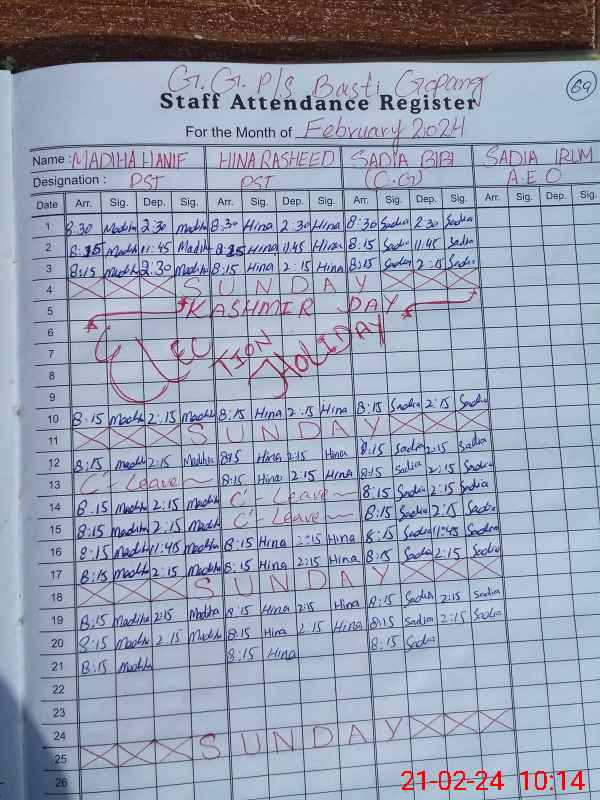 G.G.P/S Basti Gopang
69
Staff Attendance Register
For the Month of February 2024
Name : MADIHA HANIF HINA RASHEED SADIA BIBI SADIA IRUM
Designation : PST PST (C.G) A.E.O
Date Arr. Sig. Dep. Sig. Arr. Sig. Dep. Sig. Arr. Sig. Dep. Sig. Arr. Sig. Dep. Sig.
1 8:30 Madiha 2:30 Madiha 8:30 Hina 2:30 Hina 8:30 Sadia 2:30 Sadia
2 8:15 Madiha 11:45 Madiha 8:15 Hina 11:45 Hina 8:15 Sadia 11:45 Sadia
3 8:15 Madiha 2:30 Madiha 8:15 Hina 2:15 Hina 8:15 Sadia 2:15 Sadia
4 SUNDAY
5 KASHMIR DAY
6 ELECTION HOLIDAY
7
8
9
10 8:15 Madiha 2:15 Madiha 8:15 Hina 2:15 Hina 8:15 Sadia 2:15 Sadia
11 SUNDAY
12 8:15 Madiha 2:15 Madiha 8:15 Hina 2:15 Hina 8:15 Sadia 2:15 Sadia
13 C'-Leave 8:15 Hina 2:15 Hina 8:15 Sadia 2:15 Sadia
14 8:15 Madiha 2:15 Madiha C'-Leave 8:15 Sadia 2:15 Sadia
15 8:15 Madiha 2:15 Madiha C'-Leave 8:15 Sadia 2:15 Sadia
16 8:15 Madiha 11:45 Madiha 8:15 Hina 2:15 Hina 8:15 Sadia 11:45 Sadia
17 8:15 Madiha 2:15 Madiha 8:15 Hina 2:15 Hina 8:15 Sadia 2:15 Sadia
18 SUNDAY
19 8:15 Madiha 2:15 Madiha 8:15 Hina 2:15 Hina 8:15 Sadia 2:15 Sadia
20 8:15 Madiha 2:15 Madiha 8:15 Hina 2:15 Hina 8:15 Sadia 2:15 Sadia
21 8:15 Madiha 8:15 Hina 8:15 Sadia
22
23
24
25 SUNDAY
26
21-02-24 10:14